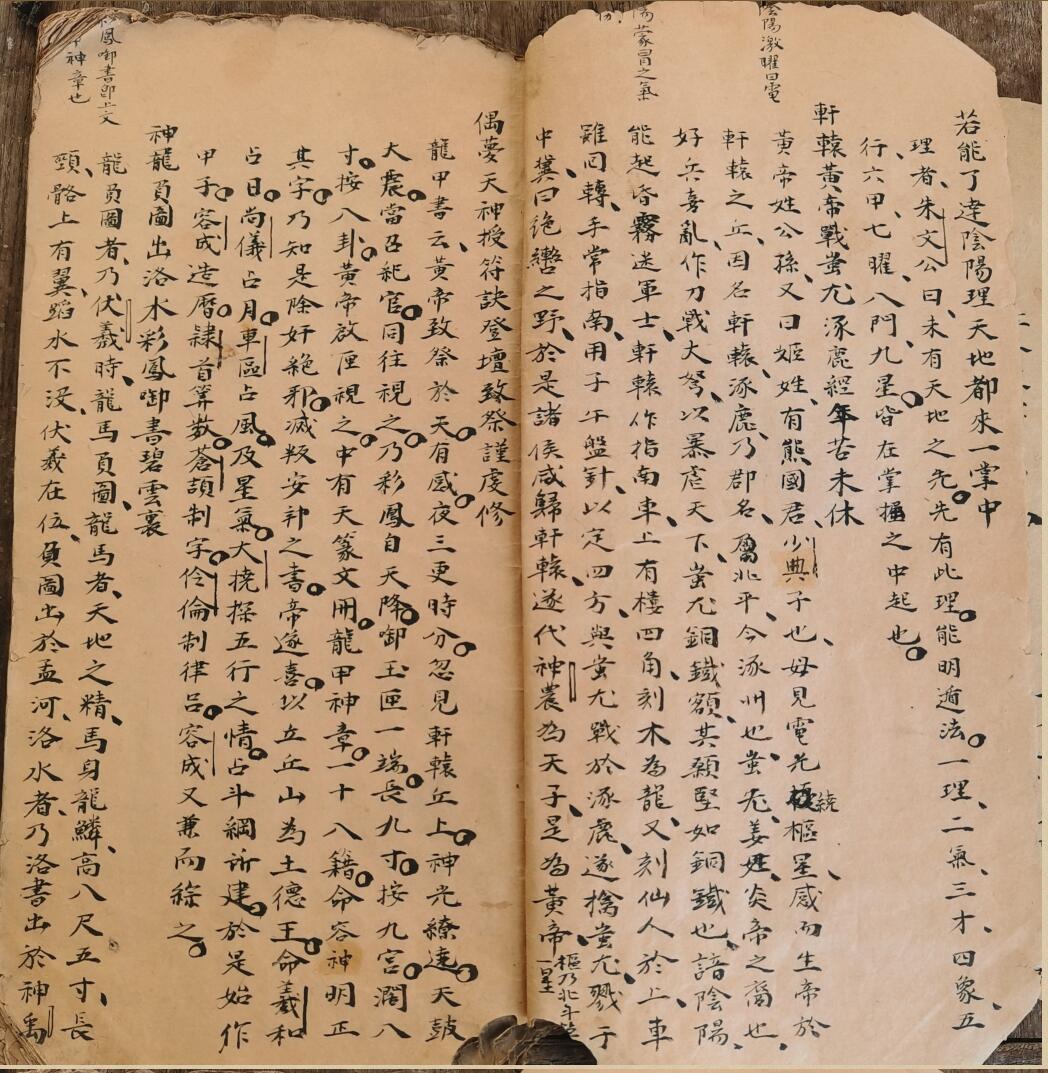 陰陽激曜曰電
陽蒙冒之氣
若能了達陰陽理天地都來一掌中
理者朱文公曰未有天地之先先有此理能明遁法一理二氣三才四象五
行六甲七曜八門九星皆在掌握之中起也
軒轅黃帝戰蚩尤涿鹿經年苦未休
黃帝姓公孫又曰姬姓有熊國君少典子也母見電光繞樞星感而生帝於
軒轅之丘因名軒轅涿鹿乃郡名屬北平今涿州也蚩尤姜姓炎帝之裔也
好兵喜亂作刀戰大弩以暴虐天下蚩尤銅鐵額其額堅如銅鐵也諳陰陽
能起昏霧迷軍士軒轅作指南車上有樓四角刻木為龍又刻仙人於上車
雖回轉手常指南用子午盤針以定四方與蚩尤戰於涿鹿遂擒蚩尤戮于
中冀曰絕轡之野於是諸侯咸歸軒轅遂代神農為天子是為黃帝
樞乃北斗第
一星
偶夢天神授符訣登壇致祭謹虔修
龍甲書云黃帝致祭於天有感夜三更時分忽見軒轅丘上神光繚遶天鼓
大震當召祀官同往視之乃彩鳳自天降啣玉匣一端長九寸按九宮濶八
寸按八卦黃帝啟匣視之中有天篆文冊龍甲神章一十八籍命容神明正
其字乃知是除奸絕邪滅叛安計之書帝遂喜以立丘山為土德王命羲和
占日尚儀占月車區占風及星氣大撓探五行之情占斗綱所建於是始作
甲子容成造曆隸首算數蒼頡制字伶倫制律呂容成又兼而綜之
神龍負圖出洛水彩鳳啣書碧雲裏
龍負圖者乃伏羲時龍馬負圖龍馬者天地之精馬身龍鱗高八尺五寸長
頸骼上有翼蹈水不没伏羲在位負圖出於孟河洛水者乃洛書出於神禹
鳳啣書即上文
神章也